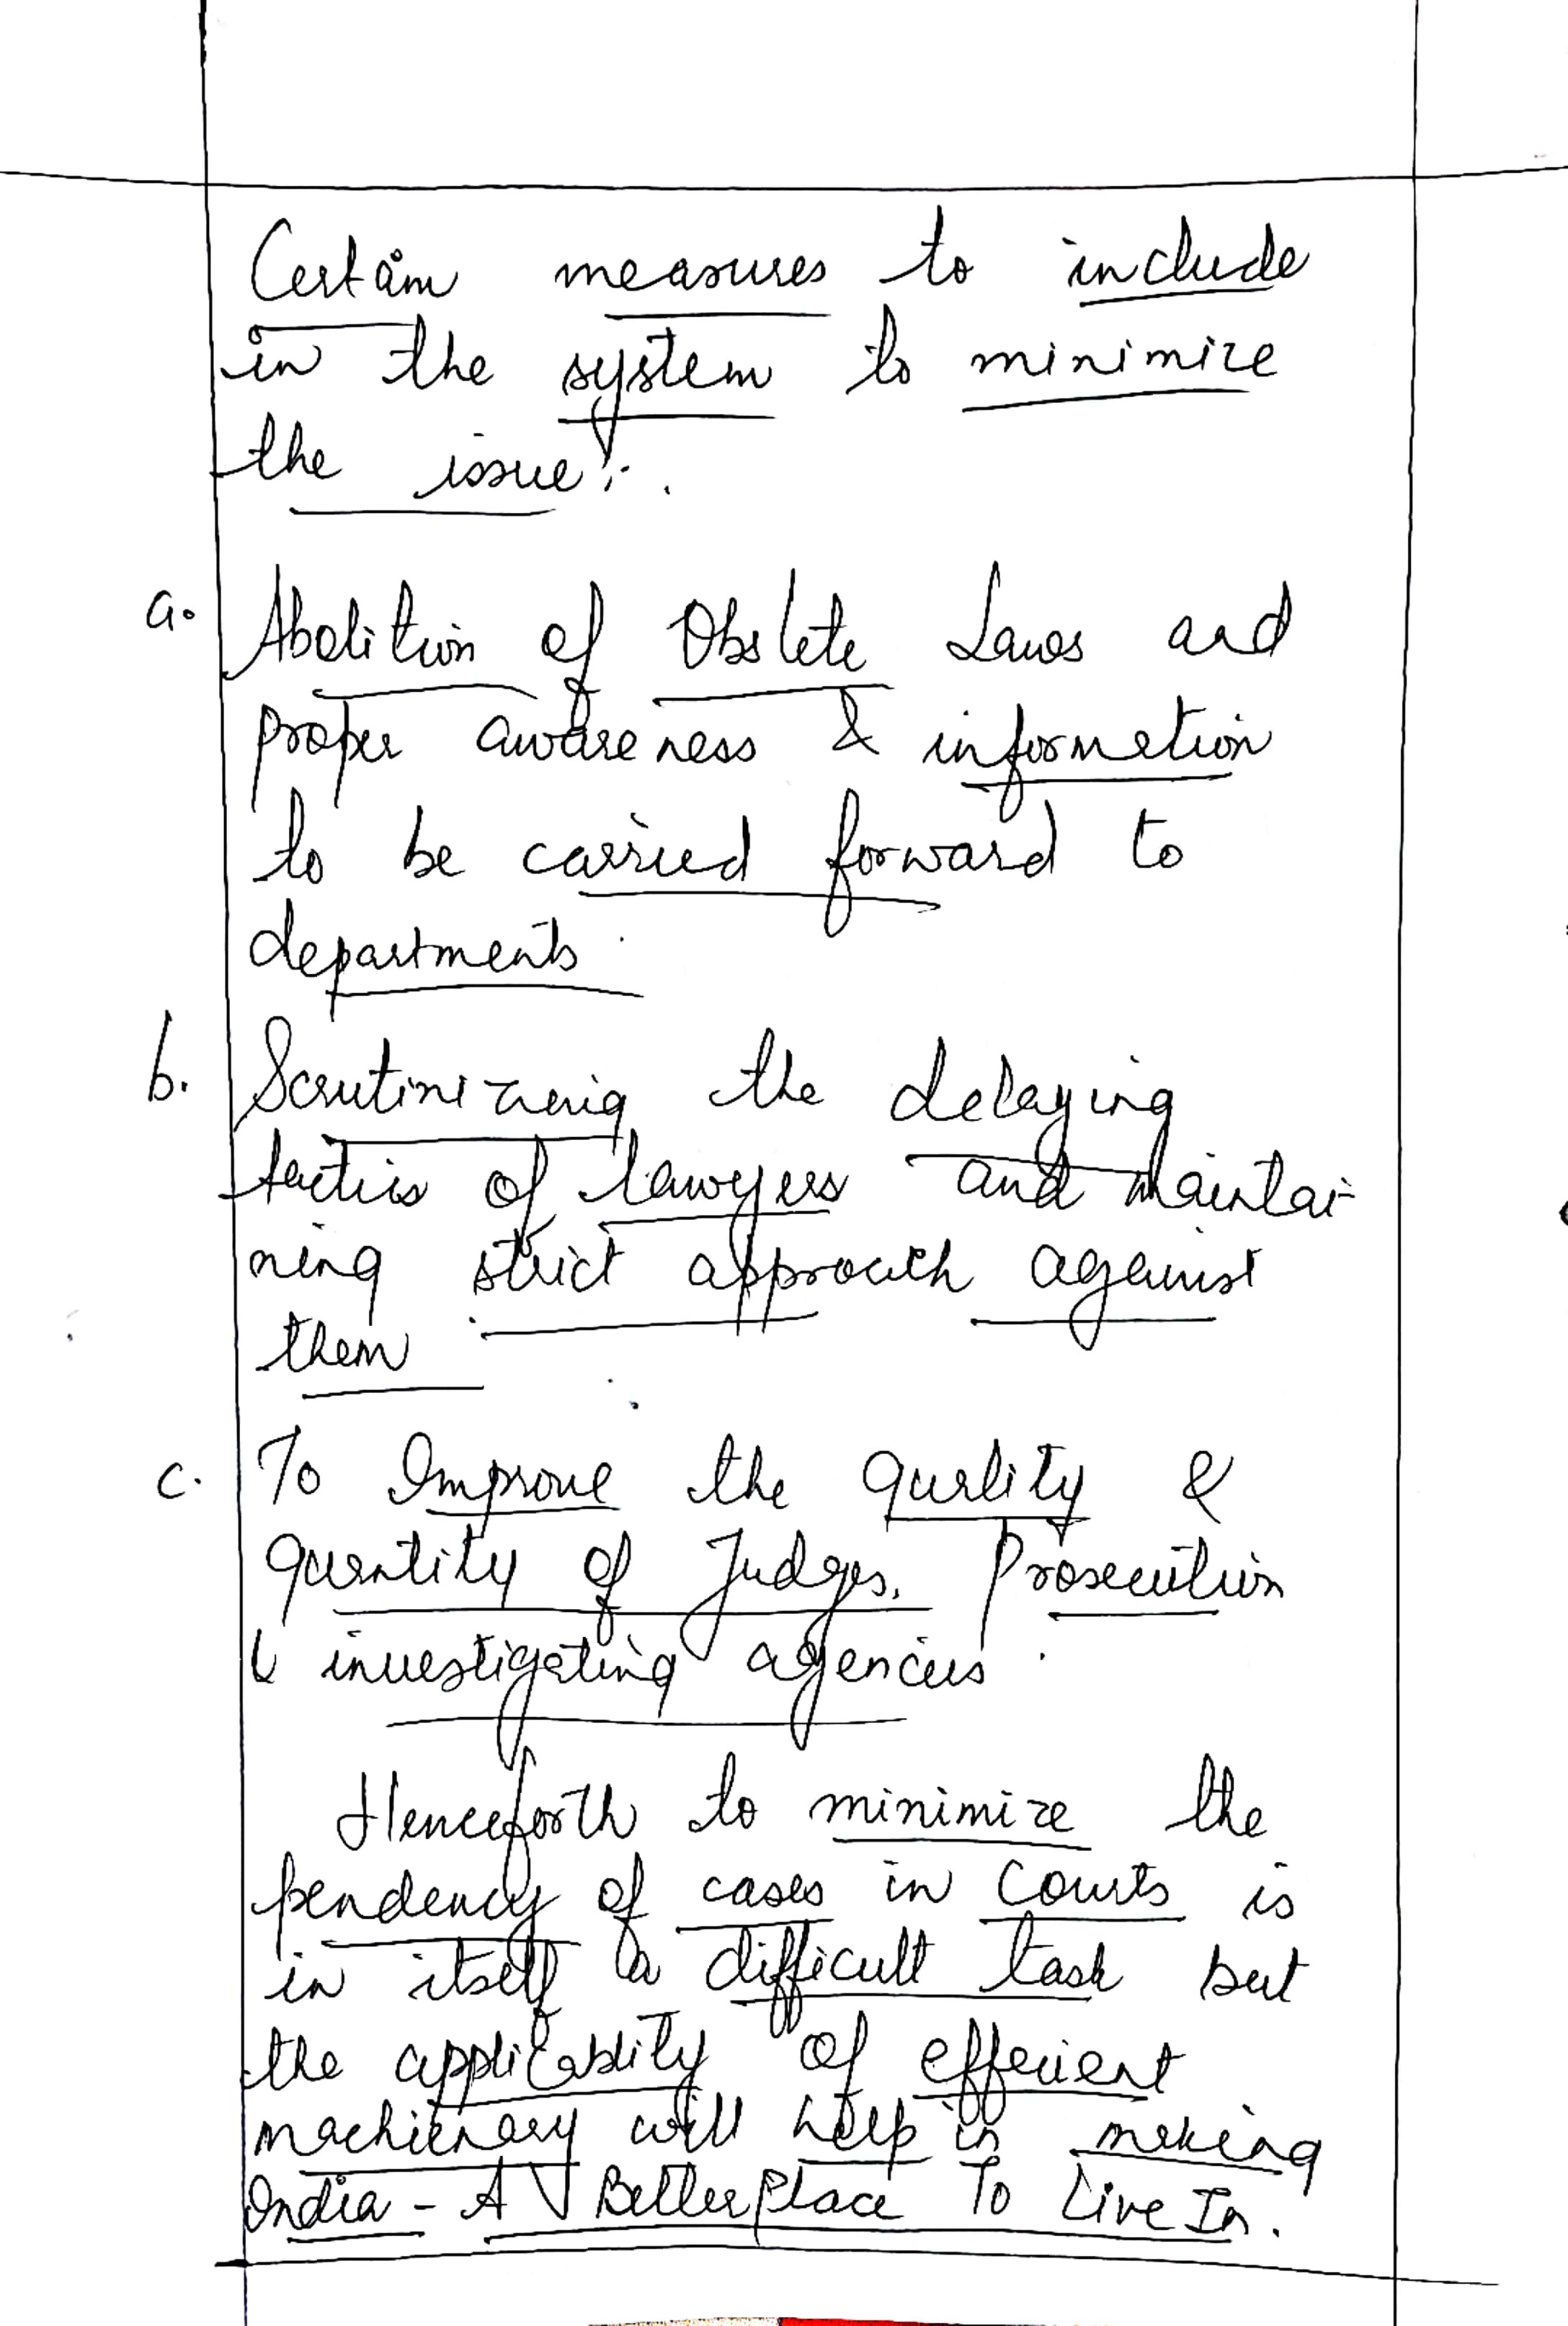 Certain measures to include
in the system to minimize
the issue :.
a. Abolition of Obslete Laws and
proper awareness & information
to be carried forward to
departments.
b. Scrutinizing the delaying
tactics of lawyers and maintai-
ning strict approach against
them
c. To Improve the quality &
quantity of Judges, Prosecution
& investigating agencies.
Henceforth to minimize the
pendency of cases in courts is
in itself a difficult task but
the applicablity of effecient
machienary will help in making
India - A Better Place To Live In.